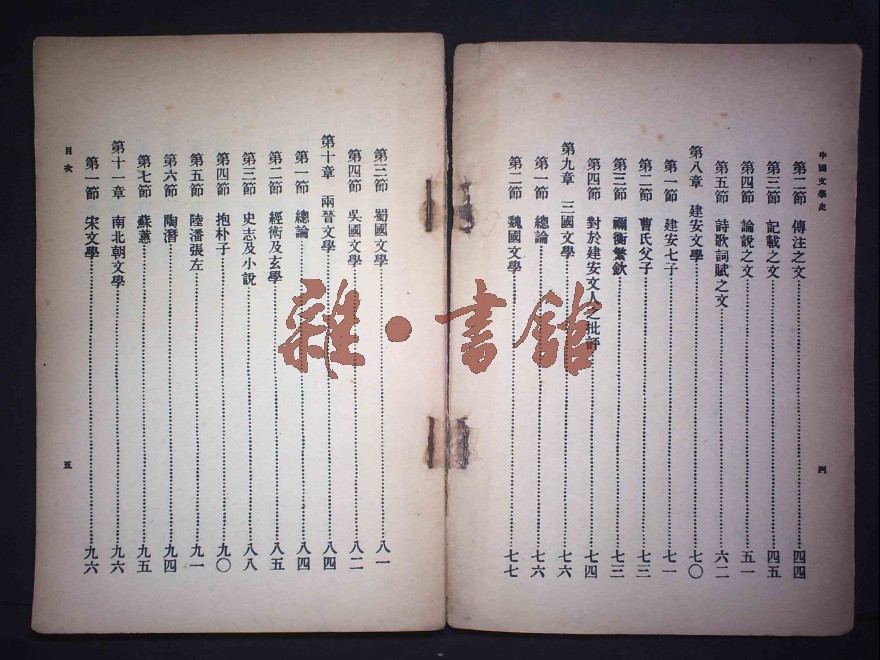 中國文學史
第二節　傳注之文……四四
第三節　記載之文……四五
第四節　論說之文……五一
第五節　詩歌詞賦之文……六二
第八章　建安文學……七〇
第一節　建安七子……七一
第二節　曹氏父子……七三
第三節　禰衡繁欽……七三
第四節　對於建安文人之批評……七四
第九章　三國文學……七六
第一節　總論……七六
第二節　魏國文學……七七
四
第三節　蜀國文學……八一
第四節　吳國文學……八二
第十章　兩晉文學……八四
第一節　總論……八四
第二節　經術及玄學……八五
第三節　史志及小說……八八
第四節　抱朴子……九〇
第五節　陸潘張左……九一
第六節　陶潛……九四
第七節　蘇蕙……九五
第十一章　南北朝文學……九六
第一節　宋文學……九六
目次
五
雜·書館